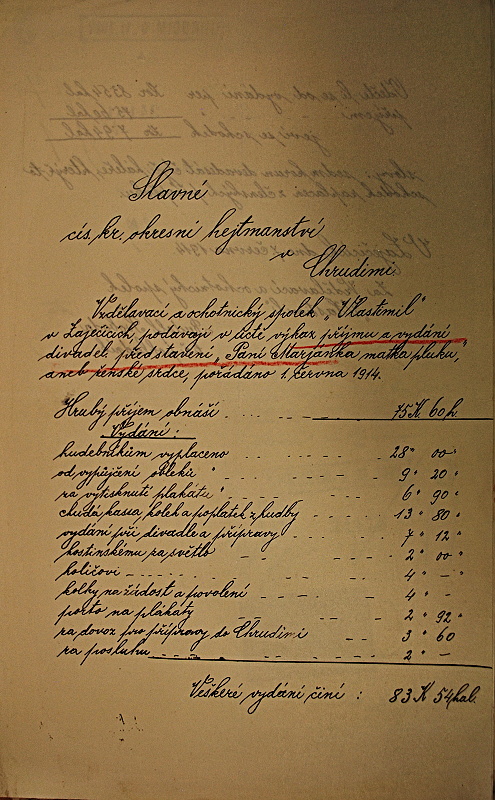 Slavné
cís. kr. okresní hejtmanství
v
Chrudimi.
Vzdělavací a ochotnický spolek „Vlastimil"
v Zaječicích, podávají v úctě výkaz příjmu a vydání
divadel. představení „Paní Marjánka matka pluku,"
aneb ženské srdce, pořádáno 1. června 1914.
Hrubý příjem obnáší . . . . 75 K. 60 h.
Vydání:
hudebníkům vyplaceno . . . . 28 " 00 "
od vypůjčení obleků " . . . . 9 " 20 "
za vytisknutí plakátu " . . . . 6 " 90 "
chudá kassa, kolek a poplatek z hudby . . . . 13 " 80 "
vydání při divadle a přípravy . . . . 7 " 12 "
hostinskému za světlo . . . . 2 " 00 "
holičovi . . . . 4 " – "
kolky na žádost a povolení . . . . 4 " –
porto na plakáty . . . . 2 " 92 "
za dovoz pro přípravy do Chrudimi . . . . 3 " 60
za posluhu . . . . 2 " –
Veškeré vydání činí : 83 K 54 hal.